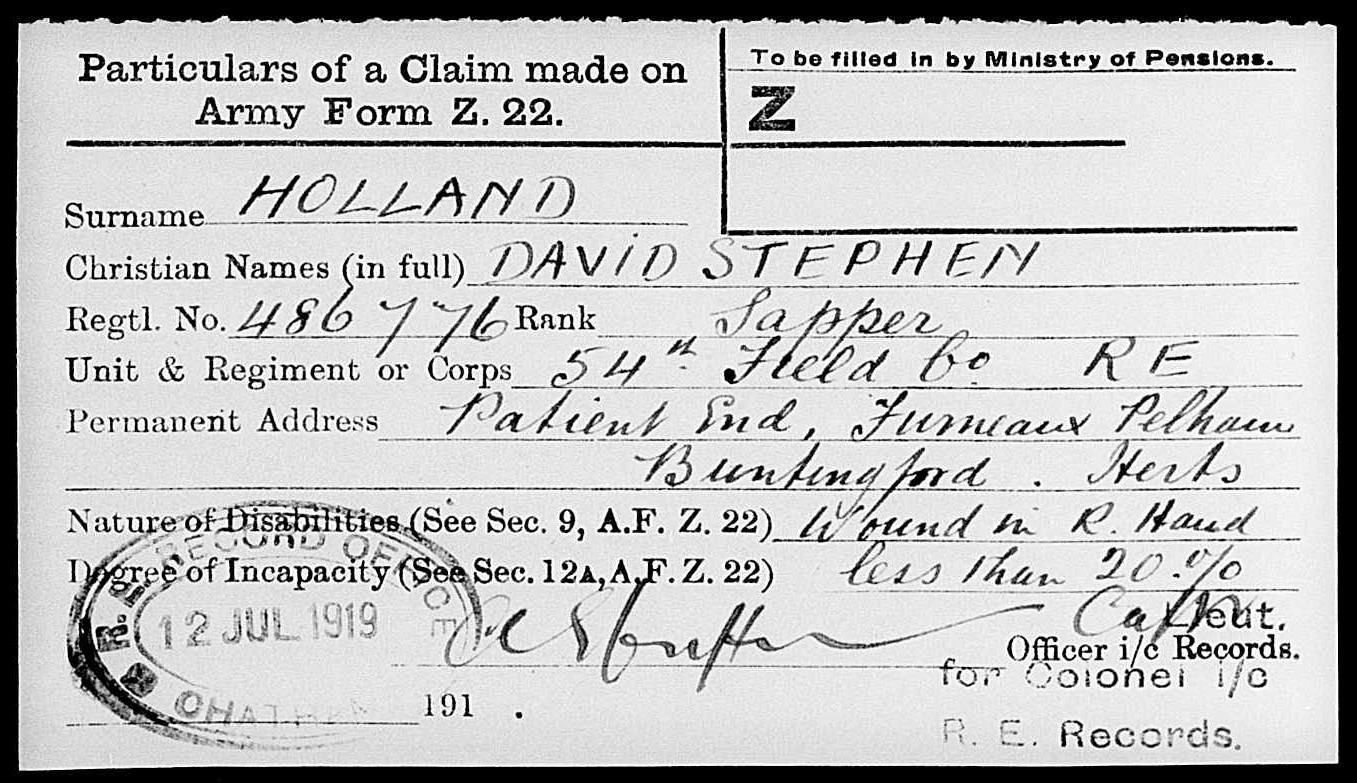 Particulars of a Claim made on
Army Form Z. 22.
To be filled in by Ministry of Pensions.
Z
Surname HOLLAND
Christian Names (in full) DAVID STEPHEN
Regtl. No. 486776 Rank Sapper
Unit & Regiment or Corps 54th Field Co RE
Permanent Address Patient End, Furneaux Pelham
Buntingford. Herts
Nature of Disabilities (See Sec. 9, A.F. Z. 22) Wound in R. Hand
Degree of Incapacity (See Sec. 12A, A.F. Z. 22) less than 20.%
R.E. RECORD OFFICE
12 JUL 1919
CHATHAM
Capt Lieut.
Officer i/c Records.
for Colonel i/c
R. E. Records.
191 .